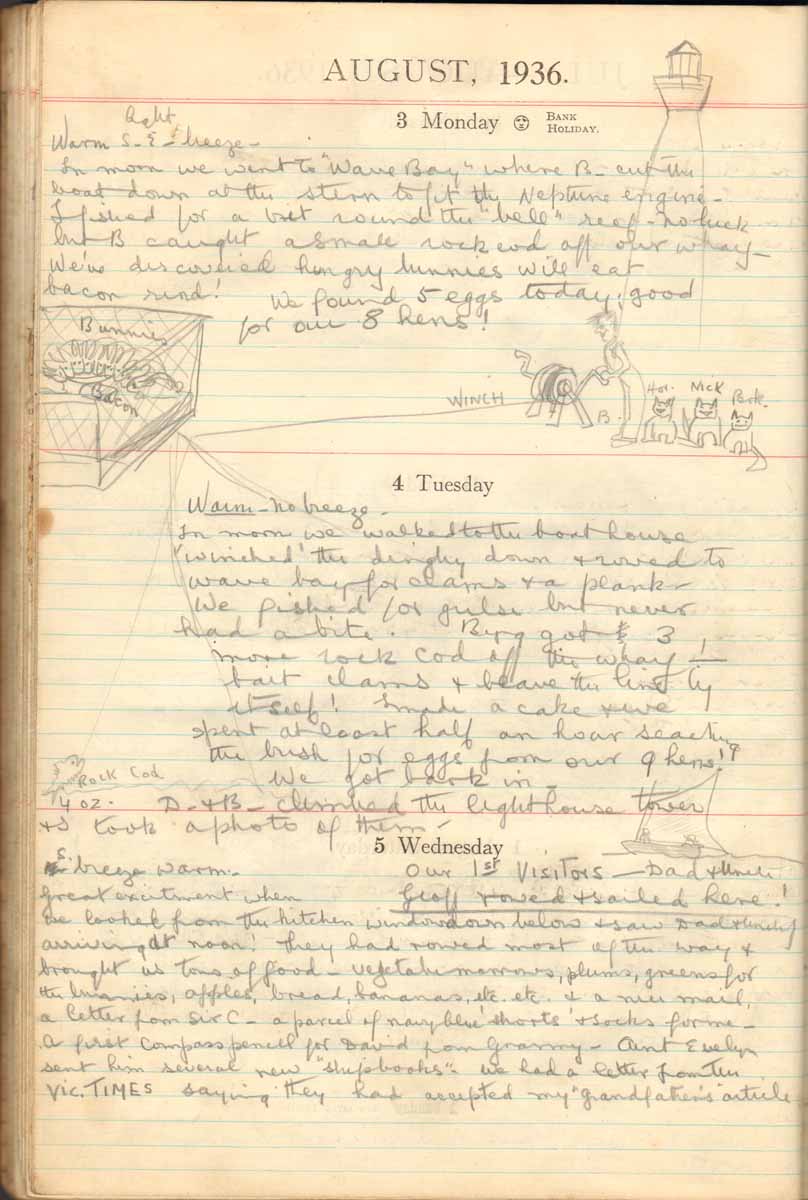 AUGUST, 1936.
3 Monday BANK HOLIDAY.
Light
Warm S-E- breeze-
In morn we went to "Wave Bay" where B- cut the
boat down at the stern to fit the Neptune engine-
I fished for a bit round the "bell" reef - no luck
but B caught a small rock cod off our wharf-
We've discovered hungry bunnies will eat
bacon rind! We found 5 eggs today, good
for our 8 hens!
Bunnies
Bacon
WINCH
B.
Hor. Nick
4 Tuesday
Warm - no breeze -
In morn we walked to the boat house
'winched' the dinghy down & rowed to
wave bay for clams & a plank -
We fished for grilse but never
had a bite. got 3
more rock cod off the wharf -
bait clams & leave the line by
itself! I made a cake & we
spent at least half an hour searching
the bush for eggs from our 9 hens!?
We got back in -
Rock Cod
4 oz. D- & B- climbed the lighthouse tower
& I took a photo of them -
5 Wednesday
S. breeze warm. Our 1st VISITORS - Dad & Uncle
Great excitment when Geoff rowed & sailed here!
we looked from the kitchen window down below & saw Dad & Uncle
arriving at noon! They had rowed most of the way &
brought us tons of food - vegetable marrows, plums, greens for
the bunnies, apples, bread, bananas, etc. etc. & a nice mail,
a letter from Sir C - a parcel of navy blue 'shorts' & socks for me -
A first compass pencil for David from Granny - Aunt Evelyn
sent him several new "shipbooks". We had a letter from the
Vic. TIMES saying they had accepted my "grandfather's" article